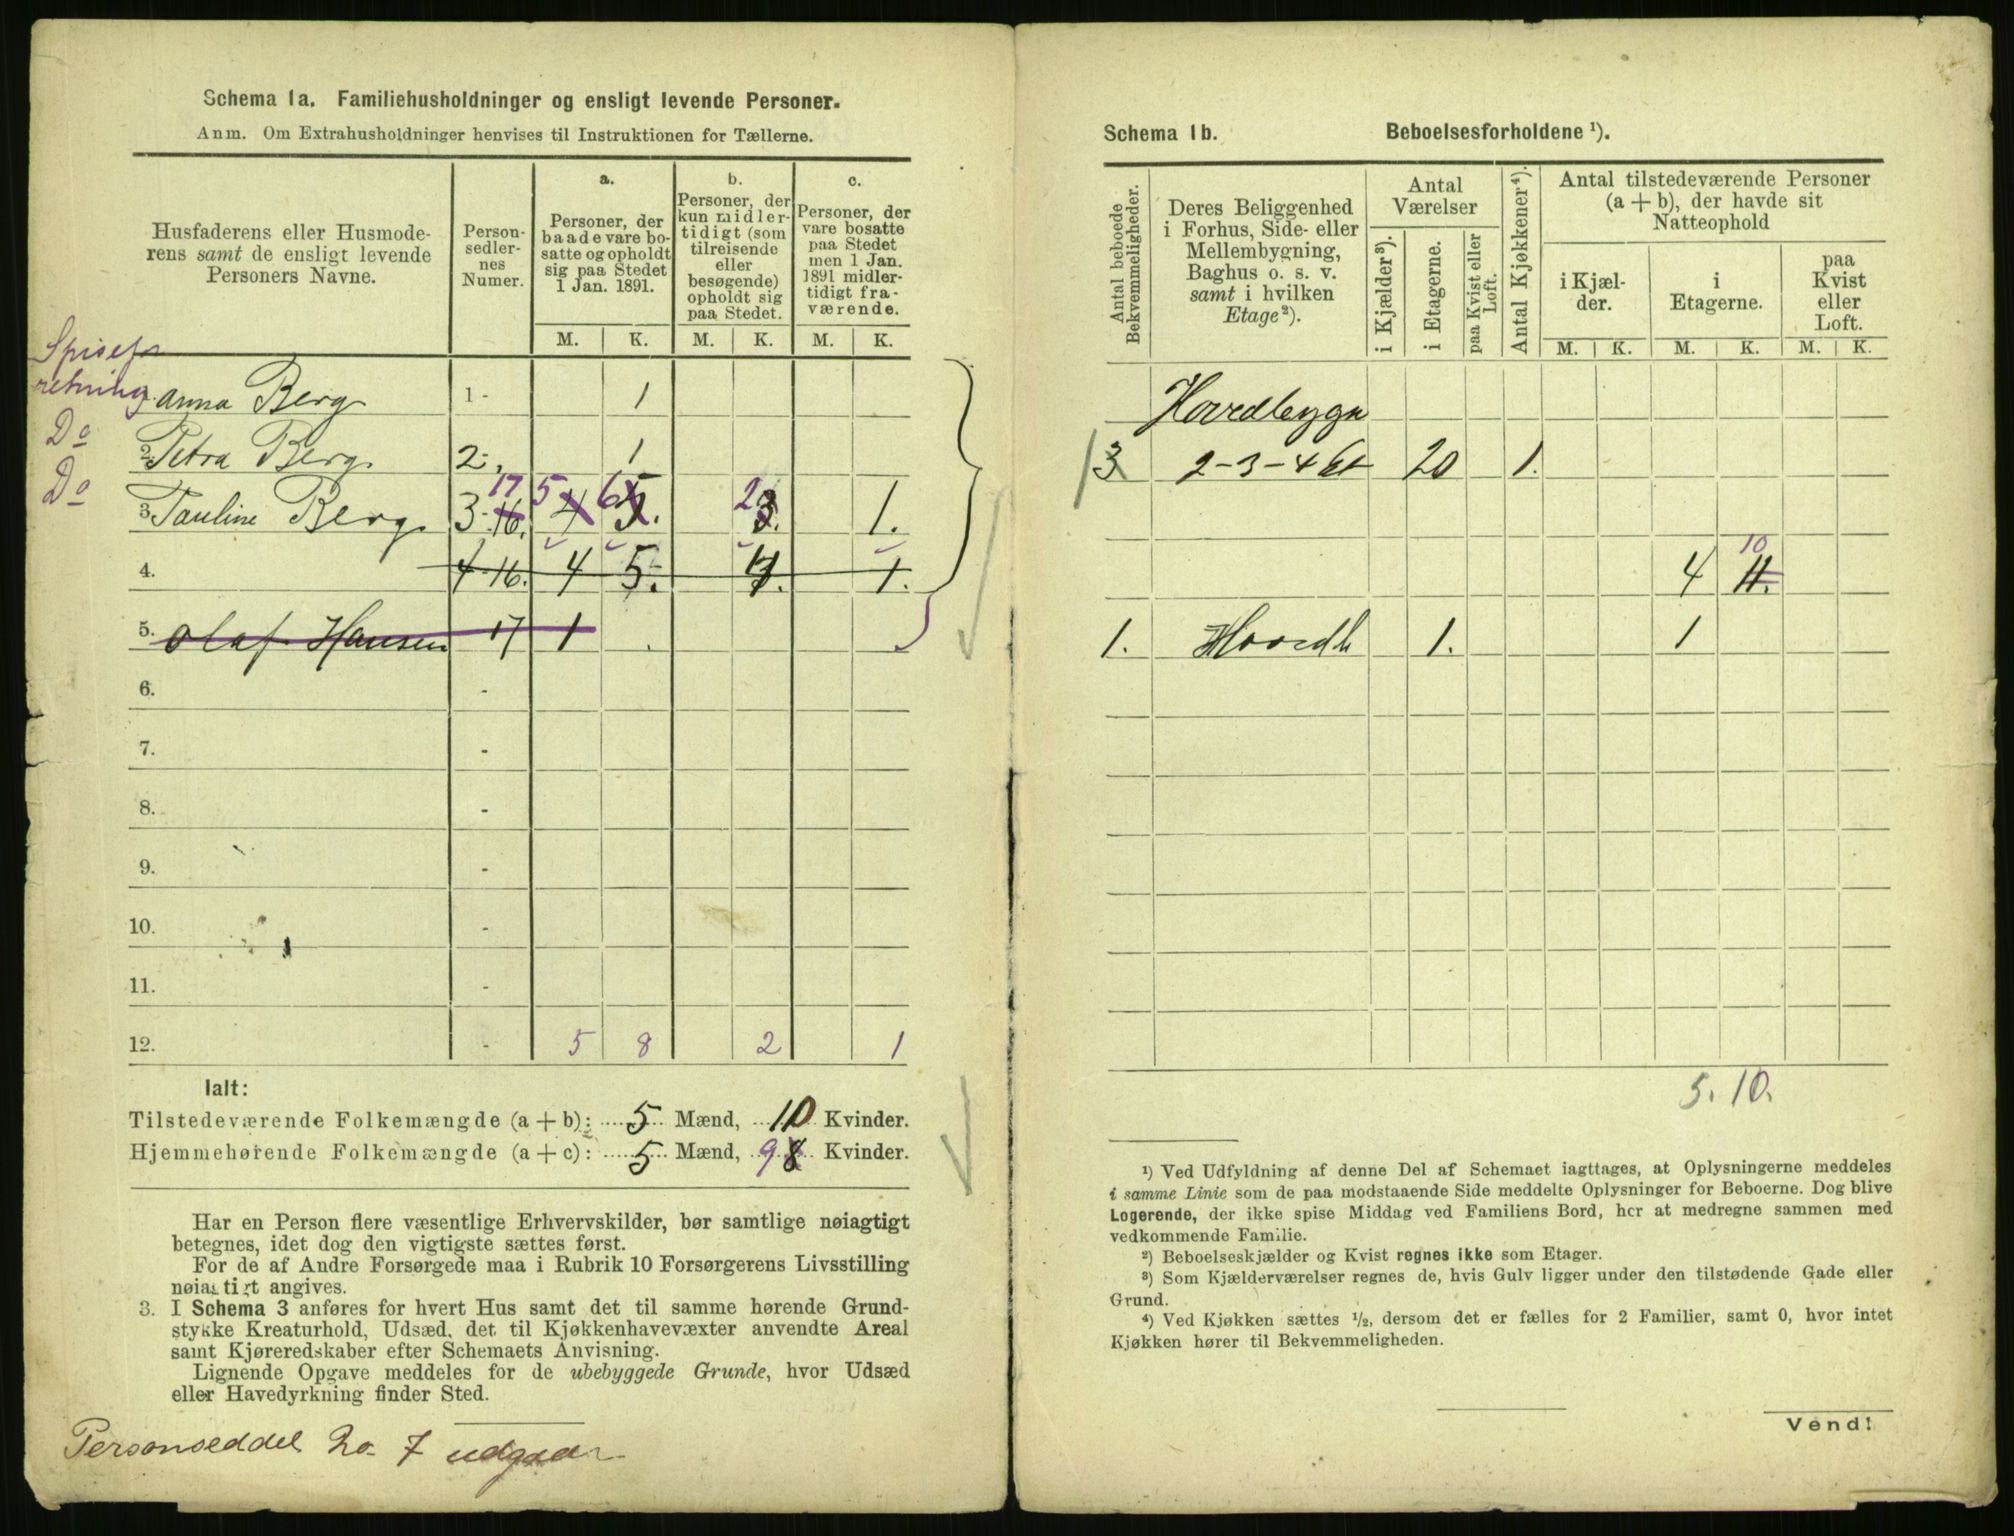 Schema 1a. Familiehusholdninger og ensligt levende Personer.
Anm. Om Extrahusholdninger henvises til Instruktionen for Tællerne.
Husfaderens eller Husmode-
rens samt de ensligt levende
Personers Navne.
Person-
sedler-
nes
Numer.
a.
Personer, der
baade vare bo-
satte og opholdt
sig paa Stedet
1 Jan. 1891.
b.
Personer, der
kun midler-
tidigt (som
tilreisende
eller
besøgende)
opholdt sig
paa Stedet.
c.
Personer, der
vare bosatte
paa Stedet
men 1 Jan.
1891 midler-
tidigt fra-
værende.
M. K. M. K. M. K.
Anna Berg 1 - 1
Do 2. Petra Berg. 2-. 1
Do 3. Pauline Berg. 3-16. 17 4 5 5. 6 3. 2 1.
4. 4-16. 4 5. 1.
5. Olaf Hansen 17 1
6. -
7. -
8. -
9. -
10. -
11. -
12. - 5 8 2 1
Ialt:
Tilstedeværende Folkemængde (a + b): 5 Mænd, 10 Kvinder.
Hjemmehørende Folkemængde (a + c): 5 Mænd, 9 8 Kvinder.
Har en Person flere væsentlige Erhvervskilder, bør samtlige nøiagtigt
betegnes, idet dog den vigtigste sættes først.
For de af Andre Forsørgede maa i Rubrik 10 Forsørgerens Livsstilling
nøiagtigt angives.
3. I Schema 3 anføres for hvert Hus samt det til samme hørende Grund-
stykke Kreaturhold, Udsæd, det til Kjøkkenhavevæxter anvendte Areal
samt Kjøreredskaber efter Schemaets Anvisning.
Lignende Opgave meddeles for de ubebyggede Grunde, hvor Udsæd
eller Havedyrkning finder Sted.
Personseddel No 7 udgaar
Schema 1b. Beboelsesforholdene ¹).
Antal beboede
Bekvemmeligheder.
Deres Beliggenhed
i Forhus, Side- eller
Mellembygning,
Baghus o. s. v.
samt i hvilken
Etage²).
Antal
Værelser
i Kjælder³).
i Etagerne.
paa Kvist eller
Loft.
Antal Kjøkkener⁴).
Antal tilstedeværende Personer
(a + b), der havde sit
Natteophold
i Kjæl-
der.
i
Etagerne.
paa
Kvist
eller
Loft.
M. K. M. K. M. K.
Hovedbygn
1 3 2-3-4 Et 20 1.
10
4 11.
1. Hovedb 1. 1
5. 10.
¹) Ved Udfyldning af denne Del af Schemaet iagttages, at Oplysningerne meddeles
i samme Linie som de paa modstaaende Side meddelte Oplysninger for Beboerne. Dog blive
Logerende, der ikke spise Middag ved Familiens Bord, her at medregne sammen med
vedkommende Familie.
²) Beboelseskjælder og Kvist regnes ikke som Etager.
³) Som Kjælderværelser regnes de, hvis Gulv ligger under den tilstødende Gade eller
Grund.
⁴) Ved Kjøkken sættes ½, dersom det er fælles for 2 Familier, samt 0, hvor intet
Kjøkken hører til Bekvemmeligheden.
Vend!